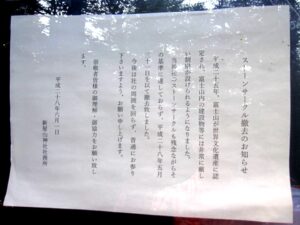 ストーンサークル撤去のお知らせ
平成二十五年、富士山が世界文化遺産に認
定され、富士山内の建設物等には非常に厳し
い制限が設けられるようになりました。
当神社ストーンサークルも残念ながらそ
の基準に達しておらず、平成二十八年五月
三十一日を以て撤去致しました。
今後は社の周囲を回らず、普通にお参り
下さいますよう、お願い申し上げます。
崇敬者皆様の御理解・御協力をお願い致し
ます。
平成二十八年六月一日
新屋山神社社務所